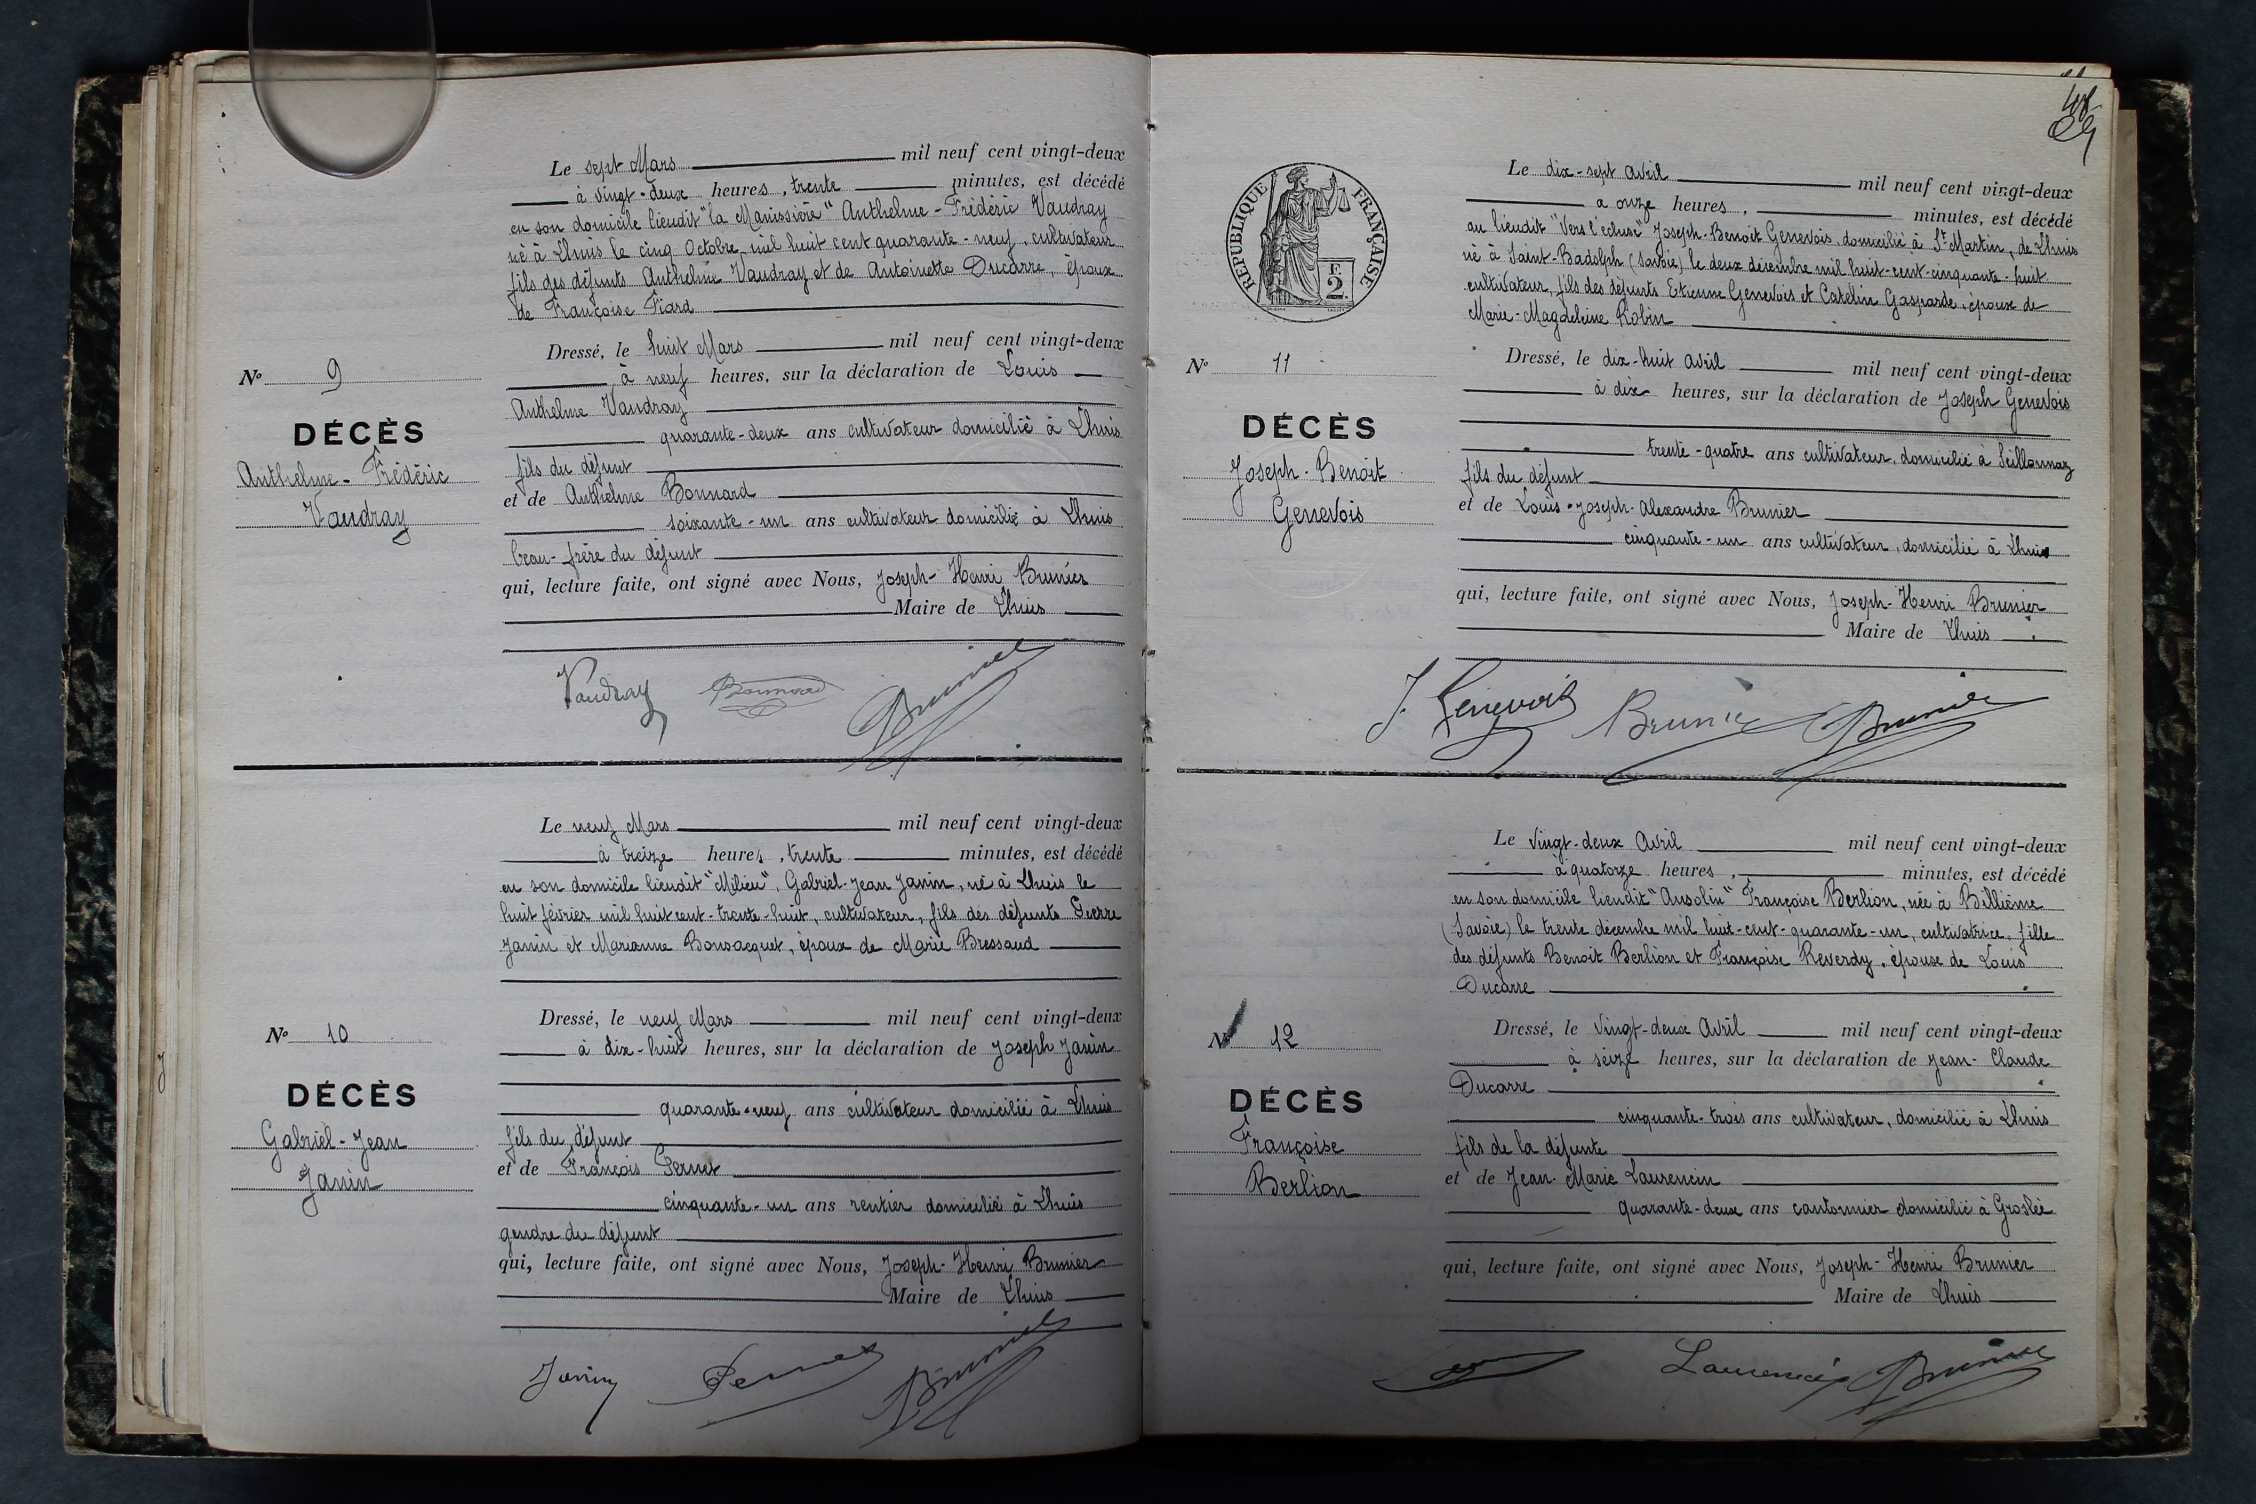 Le sept Mars mil neuf cent vingt-deux
à vingt-deux heures, trente minutes, est décédé
en son domicile lieudit "la Manissière" Anthelme-Frédéric Vaudray
né à Lhuis le cinq Octobre mil huit cent quarante-neuf, cultivateur
fils des défunts Anthelme Vaudray et de Antoinette Ducarre, époux
de Françoise Fiard
Dressé, le huit Mars mil neuf cent vingt-deux
à neuf heures, sur la déclaration de Louis
Anthelme Vaudray
quarante-deux ans cultivateur domicilié à Lhuis
fils du défunt
et de Anthelme Bonnard
soixante-un ans cultivateur domicilié à Lhuis
beau-frère du défunt
qui, lecture faite, ont signé avec Nous, Joseph-Henri Brunier
Maire de Lhuis
No 9
DÉCÈS
Anthelme-Frédéric
Vaudray
Vaudray Bonnard Brunier
Le neuf Mars mil neuf cent vingt-deux
à treize heures, trente minutes, est décédé
en son domicile lieudit "Milieu", Gabriel-Jean Janin, né à Lhuis le
huit février mil huit cent-trente-huit, cultivateur, fils des défunts Pierre
Janin et Marianne Bonsacquet, époux de Marie Bressaud
Dressé, le neuf Mars mil neuf cent vingt-deux
à dix-huit heures, sur la déclaration de Joseph Janin
quarante-neuf ans cultivateur domicilié à Lhuis
fils du défunt
et de François Pernet
cinquante-un ans rentier domicilié à Lhuis
gendre du défunt
qui, lecture faite, ont signé avec Nous, Joseph-Henri Brunier
Maire de Lhuis
No 10
DÉCÈS
Gabriel-Jean
Janin
Janin Pernet Brunier
RÉPUBLIQUE FRANÇAISE
F.
2
Le dix-sept avril mil neuf cent vingt-deux
à onze heures, minutes, est décédé
au lieudit "Vers l'écluse" Joseph-Benoit Genevois domicilié à St Martin, de Lhuis
né à Saint-Badolph (Savoie) le deux décembre mil huit-cent-cinquante-huit
cultivateur, fils des défunts Etienne Genevois et Catelin Gasparde, époux de
Marie-Magdeleine Robin
Dressé, le dix-huit avril mil neuf cent vingt-deux
à dix heures, sur la déclaration de Joseph Genevois
trente-quatre ans cultivateur, domicilié à Seillonnaz
fils du défunt
et de Louis-Joseph-Alexandre Brunier
cinquante-un ans cultivateur, domicilié à Lhuis
qui, lecture faite, ont signé avec Nous, Joseph-Henri Brunier
Maire de Lhuis
No 11
DÉCÈS
Joseph-Benoit
Genevois
J. Genevois Brunier Brunier
Le vingt-deux Avril mil neuf cent vingt-deux
à quatorze heures, minutes, est décédé
en son domicile lieudit "Ansolin" Françoise Berlion, née à Billième
(Savoie) le trente décembre mil huit-cent-quarante-un, cultivatrice, fille
des défunts Benoit Berlion et Françoise Reverdy, épouse de Louis
Ducarre
Dressé, le vingt-deux Avril mil neuf cent vingt-deux
à seize heures, sur la déclaration de Jean-Claude
Ducarre
cinquante-trois ans cultivateur, domicilié à Lhuis
fils de la défunte
et de Jean-Marie Laurencin
quarante-deux ans cantonnier domicilié à Groslée
qui, lecture faite, ont signé avec Nous, Joseph-Henri Brunier
Maire de Lhuis
No 12
DÉCÈS
Françoise
Berlion
Laurencin Brunier